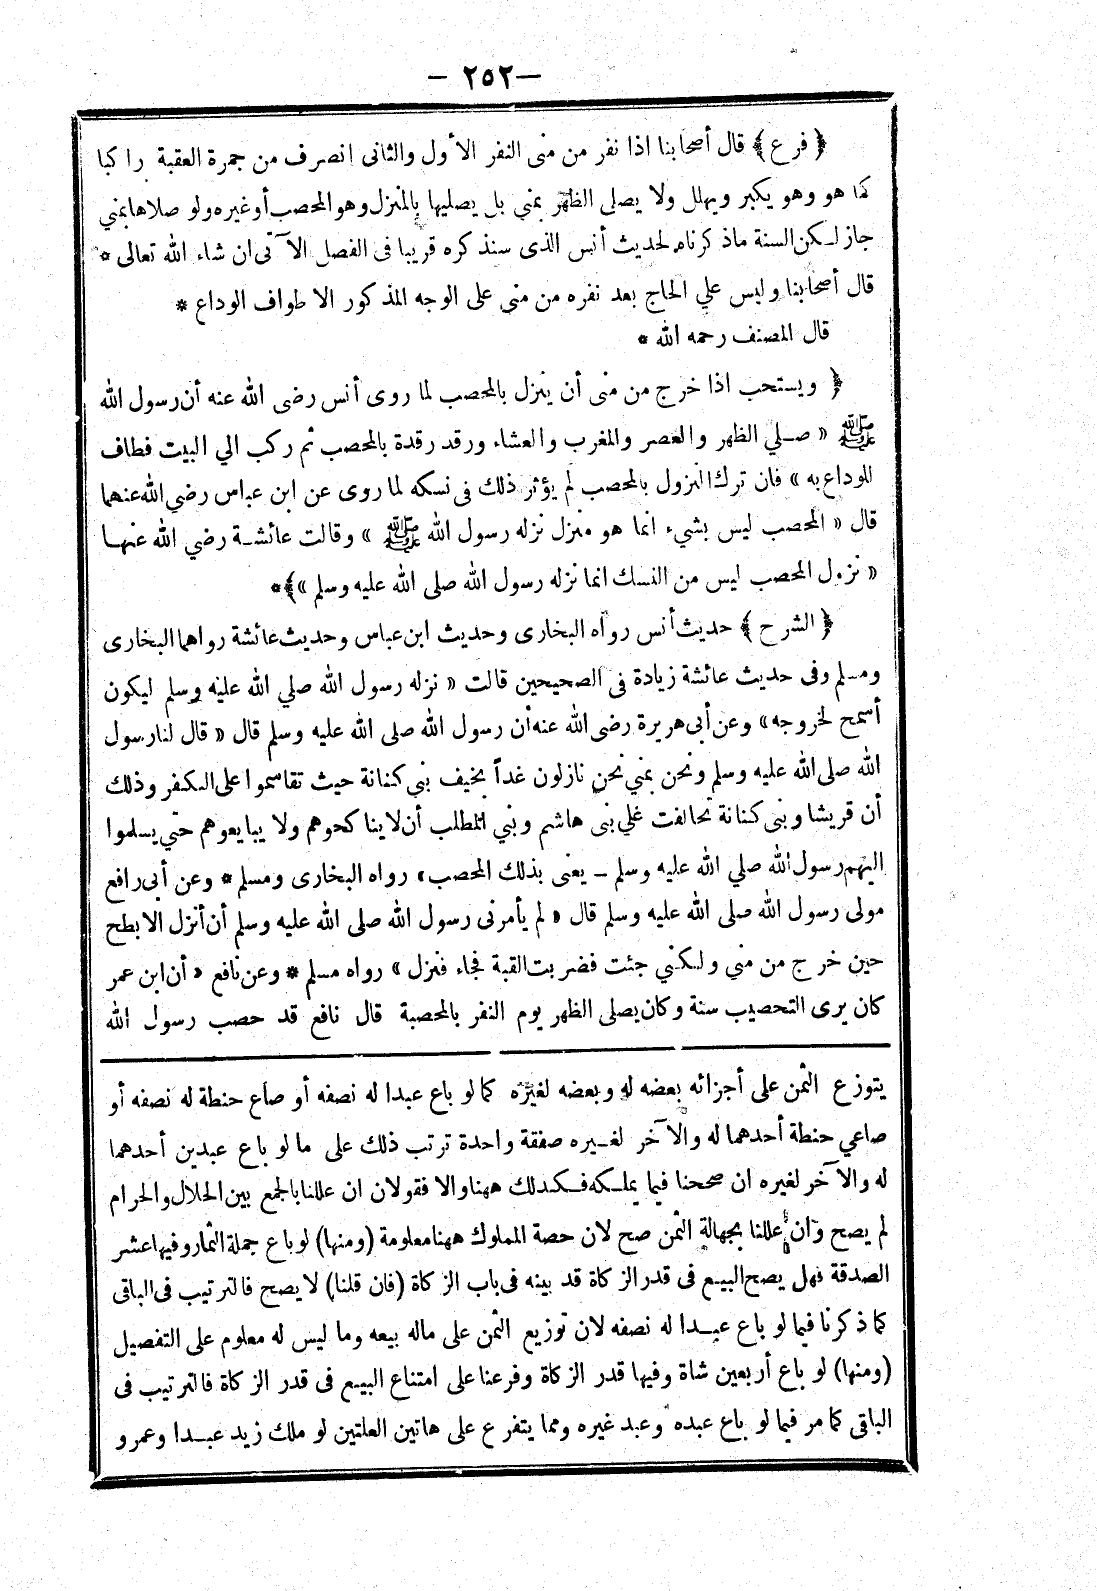 — ٢٥٢ —
﴿ فرع ﴾ قال أصحابنا اذا نفر من منى النفر الأول والثانى انصرف من جمرة العقبة راكبا
كما هو وهو يكبر ويهلل ولا يصلى الظهر بمني بل يصليها بالمنزل وهو المحصب أو غيره ولو صلاها بمني
جاز لكن السنة ماذكرناه لحديث أنس الذى سنذكره قريبا فى الفصل الآتى ان شاء الله تعالى *
قال أصحابنا وليس علي الحاج بعد نفره من منى على الوجه المذكور الا طواف الوداع *
قال المصنف رحمه الله *
﴿ ويستحب اذا خرج من منى أن ينزل بالمحصب لما روى أنس رضى الله عنه أن رسول الله
ﷺ « صلي الظهر والعصر والمغرب والعشاء ورقد رقدة بالمحصب ثم ركب الي البيت فطاف
للوداع به » فان ترك النزول بالمحصب لم يؤثر ذلك فى نسكه لما روى عن ابن عباس رضي الله عنهما
قال « المحصب ليس بشيء انما هو منزل نزله رسول الله ﷺ » وقالت عائشة رضي الله عنها
« نزول المحصب ليس من النسك انما نزله رسول الله صلى الله عليه وسلم »﴾*
﴿ الشرح ﴾ حديث أنس رواه البخارى وحديث ابن عباس وحديث عائشة رواهما البخارى
ومسلم وفى حديث عائشة زيادة فى الصحيحين قالت « نزله رسول الله صلي الله عليه وسلم ليكون
أسمح لخروجه» وعن أبى هريرة رضى الله عنه أن رسول الله صلى الله عليه وسلم قال « قال لنا رسول
الله صلى الله عليه وسلم ونحن بمني نحن نازلون غداً بخيف بنى كنانة حيث تقاسموا على الكفر وذلك
أن قريشا وبنى كنانة تحالفت علي بنى هاشم وبني المطلب أن لايناكحوهم ولا يبايعوهم حتي يسلموا
اليهم رسول الله صلي الله عليه وسلم ـ يعنى بذلك المحصب» رواه البخارى ومسلم * وعن أبى رافع
مولى رسول الله صلى الله عليه وسلم قال « لم يأمرنى رسول الله صلى الله عليه وسلم أن أنزل الابطح
حين خرج من مني ولكني جئت فضربت القبة فجاء فنزل » رواه مسلم * وعن نافع « أن ابن عمر
كان يرى التحصيب سنة وكان يصلى الظهر يوم النفر بالمحصبة قال نافع قد حصب رسول الله
يتوزع الثمن على أجزائه بعضه له وبعضه لغيره كما لو باع عبدا له نصفه أو صاع حنطة له نصفه أو
صاعي حنطة أحدهما له والآخر لغيره صفقة واحدة ترتب ذلك على ما لو باع عبدين أحدهما
له والآخر لغيره ان صححنا فيما يملكه فكذلك ههنا والا فقولان ان عللنا بالجمع بين الحلال والحرام
لم يصح وان عللنا بجهالة الثمن صح لان حصة المملوك ههنا معلومة (ومنها) لو باع جملة الثمار وفيها عشر
الصدقة فهل يصح البيع فى قدر الزكاة قد بينه فى باب الزكاة (فان قلنا) لا يصح فالترتيب فى الباقى
كما ذكرنا فيما لو باع عبدا له نصفه لان توزيع الثمن على ماله بيعه وما ليس له معلوم على التفصيل
(ومنها) لو باع أربعين شاة وفيها قدر الزكاة وفرعنا على امتناع البيع فى قدر الزكاة فالترتيب فى
الباقى كما مر فيما لو باع عبده وعبد غيره ومما يتفرع على هاتين العلتين لو ملك زيد عبدا وعمرو